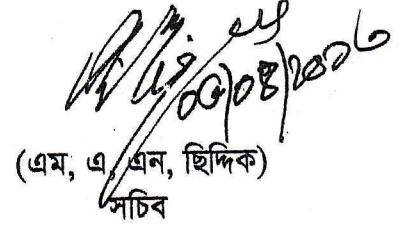 ০৫/০৪/২০১৬
(এম, এ, এন, ছিদ্দিক)
সচিব